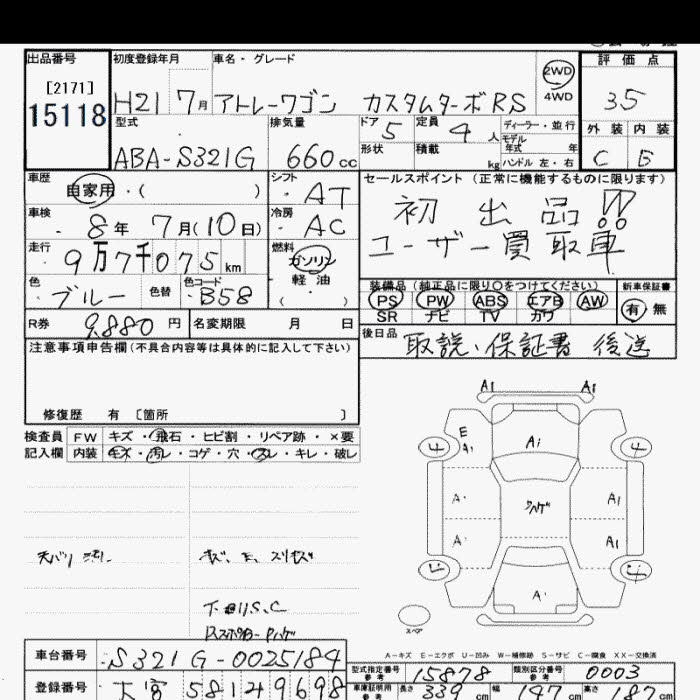 出品番号 初度登録年月 車名・グレード 評価点
[2171]
15118
H21 7月 アトレーワゴン カスタムターボRS 2WD 4WD 35
型式 排気量 ドア 定員 ディーラー・並行 外装 内装
5 4人 モデル年式 年
ABA-S321G 660cc 形状 積載 kg ハンドル 左・右 C E
車歴 自家用・( ) シフト AT セールスポイント(正常に機能するものに限ります)
車検 8年 7月(10日) 冷房 AC 初出品!!
走行 9万7千075km 燃料 ガソリン ユーザー買取車
軽油
色 ブルー 色替 色コード B58 ( )
装備品(純正品に限り○をつけてください) 新車保証書
PS PW ABS エアB AW 有 無
SR ナビ TV カワ
R券 9,880円 名変期限 月 日
後日品 取説、保証書 後送
注意事項申告欄(不具合内容等は具体的に記入して下さい)
修復歴 有 [箇所 ]
検査員 FW キズ・飛石・ヒビ割・リペア跡・×要
記入欄 内装 キズ・汚レ・コゲ・穴・スレ・キレ・破レ
A1 A1
E A1 A1
A A1
A A1
A
スペア
A-キズ E-エクボ U-凹み W-補修跡 S-サビ C-腐食 XX-交換済
車台番号 S321G-0025184
型式指定番号 参考 15878 類別区分番号 参考 0003
登録番号 大宮 581 9698
車庫証明用 参考 長さ 339cm 幅 147cm 高さ 187cm